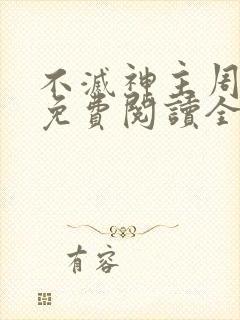 不滅神主周
免費閱讀全
有容